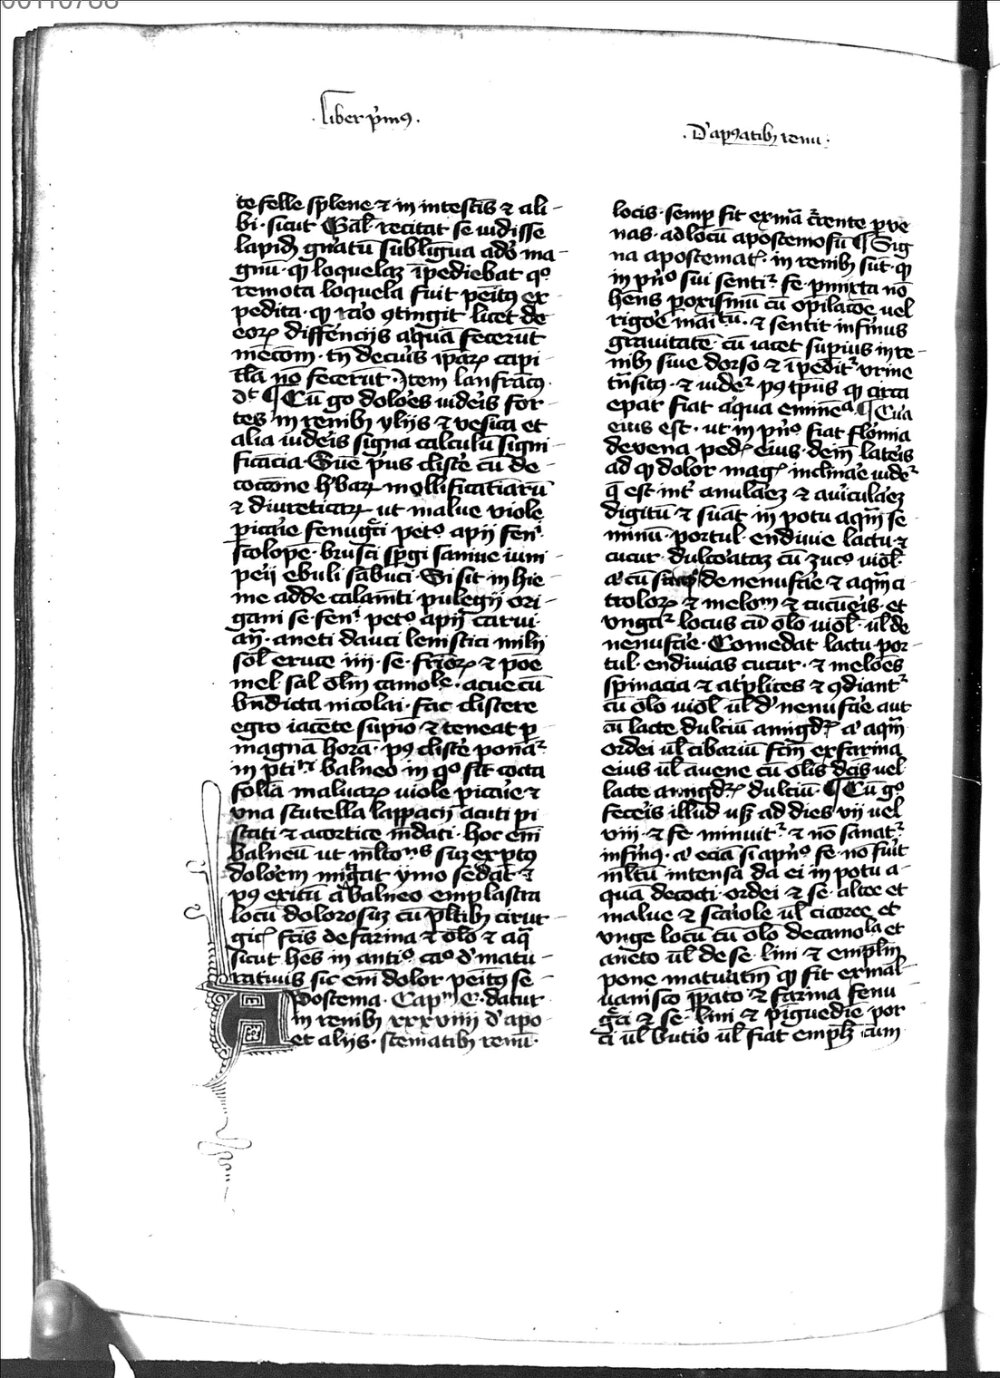 00110788
.liber p̄m9.
.D' ap9atib3 renū.
te felle splene ⁊ in intestis ⁊ ali-
bi. sicut Gal̄. recitat se uidisse
lapid̄ gn̄atū sub lingua adō ma-
gnū. qd̄ loquelaz īpediebat qo
remota loquela fuit pēit9 ex
pedita. qd̄ raō 9tingit. licet de
eorꝝ differēcijs aꝗ̄ua fecerūt
mēcōm. tn̄ de cuīs ip̄arꝝ capi
tl̄a nō fecerūt. Item lanfrāc9.
dt ¶ Cū gͦ doloēs uideīs for
tes in renib3 ylijs ⁊ uesica et
alia uideīs signa calculū signi
ficācia. Sūe p̄us clistē cū de-
coccōne h'barꝝ mollificatiuarū
⁊ diureticarꝝ. ut malue viole
pitaīe fenuḡci peto. apij feni.
scolope. brusci sp̄gi saxine iuni
peri ebuli sābuci. Si sit in hie
me adde calamīti pulegij ori-
gani se. feni. peto. apij carui
an̄. aneti dauci leuistici milij
sol̄ eruce iiij. se. friorꝝ ⁊ pōe
mel sal ol̄m camole. acue cū
bn̄dicta nicolai. fac clistere
egro iacēte supīo ⁊ teneat p
magna hora. p9 clistē ponar
in balneo in qͦ sit cocta
folla maluarꝝ viole pitaīe ⁊
vna scutella lappacij acuti pi
stati ⁊ a cortice mūdati. hoc em̄
balneū ut mltons suz exp̄t9
dolōem mīgat ymo sedat ⁊
p9 exitū a balneo emplastra
locū dolorosuz cū pltib3 cirur-
giē fcīs de farina ⁊ olō ⁊ aꝗ̄
sicut hēs in antio. caō d' matu-
ratiuis sic em̄ dolor pēit9 se-
Apostema. Capm̄ C. datur.
in renib3 xxxviiij d' apo-
et alijs. stematib3 renū.
locis. semp fit ex mā c̄rente p ve
nas. ad locū apostemosū ¶ Sig
na apostemat. in renib3 sūt. qd̄
in p̄no sui sentir fe. p mixta nō
hēns poxismū cū opilacōe uel
rigoē māitū. ⁊ sentit infirmus
grauitatē cū iacet sup̄ius in re-
nib3 siue dorso ⁊ īpeditr urine
tn̄sit9. ⁊ uider p9 tp̄us qd̄ circa
epar fiat aꝗ̄ua eminēa. ¶ Cūa
eius est. ut in p̄no fiat flōmia
de vena ped. eius. dein lateīs
ad qd̄ dolor mag. inclināe uider
q̄ est int' anulaēz ⁊ auiculaēz
digitū ⁊ sūat in potu aqm̄ se
minū. portul. endiuie lactu ⁊
cucur. dulcoātaz cū zuco viol.
a' cū sirup̄ de nenufāe ⁊ aqm̄ ci
trolorꝝ ⁊ melonū ⁊ cucueīs. et
ungar locus cū olō viol. ul̄ de
nenufāe. Comedat lactu por-
tul. endiuias cucur. ⁊ melōes
spinacia ⁊ atplices ⁊ 9diantr
cū olō viol ul̄ d' nenufāe aut
cū lacte dulciū amigd. a' aqm̄
ordei ul̄ cibariū fcm̄ ex farina
eius ul̄ auene cū olīs dcīs uel
lacte amigd. dulciū. ¶ Cū gͦ
feceīs illud usq3 ad dies vij uel
viij. ⁊ fe minuitr ⁊ nō sanatr
infirm9. a' eciā si a p̄no fe. nō fūit
ml̄tū intensa da ei in potu a-
quā decocti. ordei ⁊ se. altee et
malue ⁊ scaīole ul̄ cicoree. et
vnge locū cū olō de camola et
aneto ul̄ de se. lini ⁊ emplm̄
pone maturatm̄ qd̄ fit ex mal-
uauisco ip̄ato ⁊ farina fenu
ḡci ⁊ se. lini ⁊ pīguedīe por
ci ul̄ butīo ul̄ fiat emplz cum